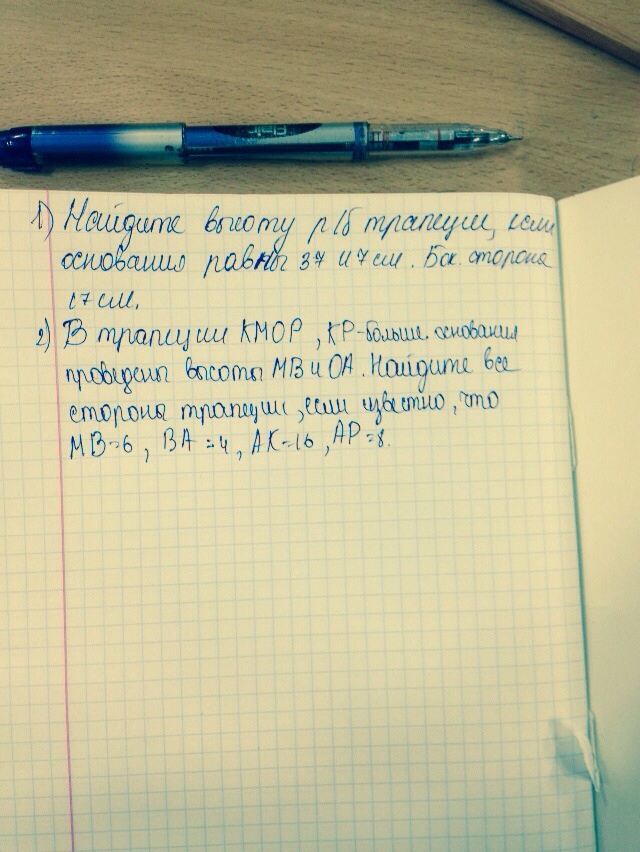 1) Найдите высоту р/б трапеции, если
основания равны 37 и 7 см. Бок. сторона
17 см.
2) В трапеции КМОР, КР-больше. основания
проведены высоты МВ и ОА. Найдите все
стороны трапеции, если известно, что
МВ=6, ВА=4, АК=16, АР=8.